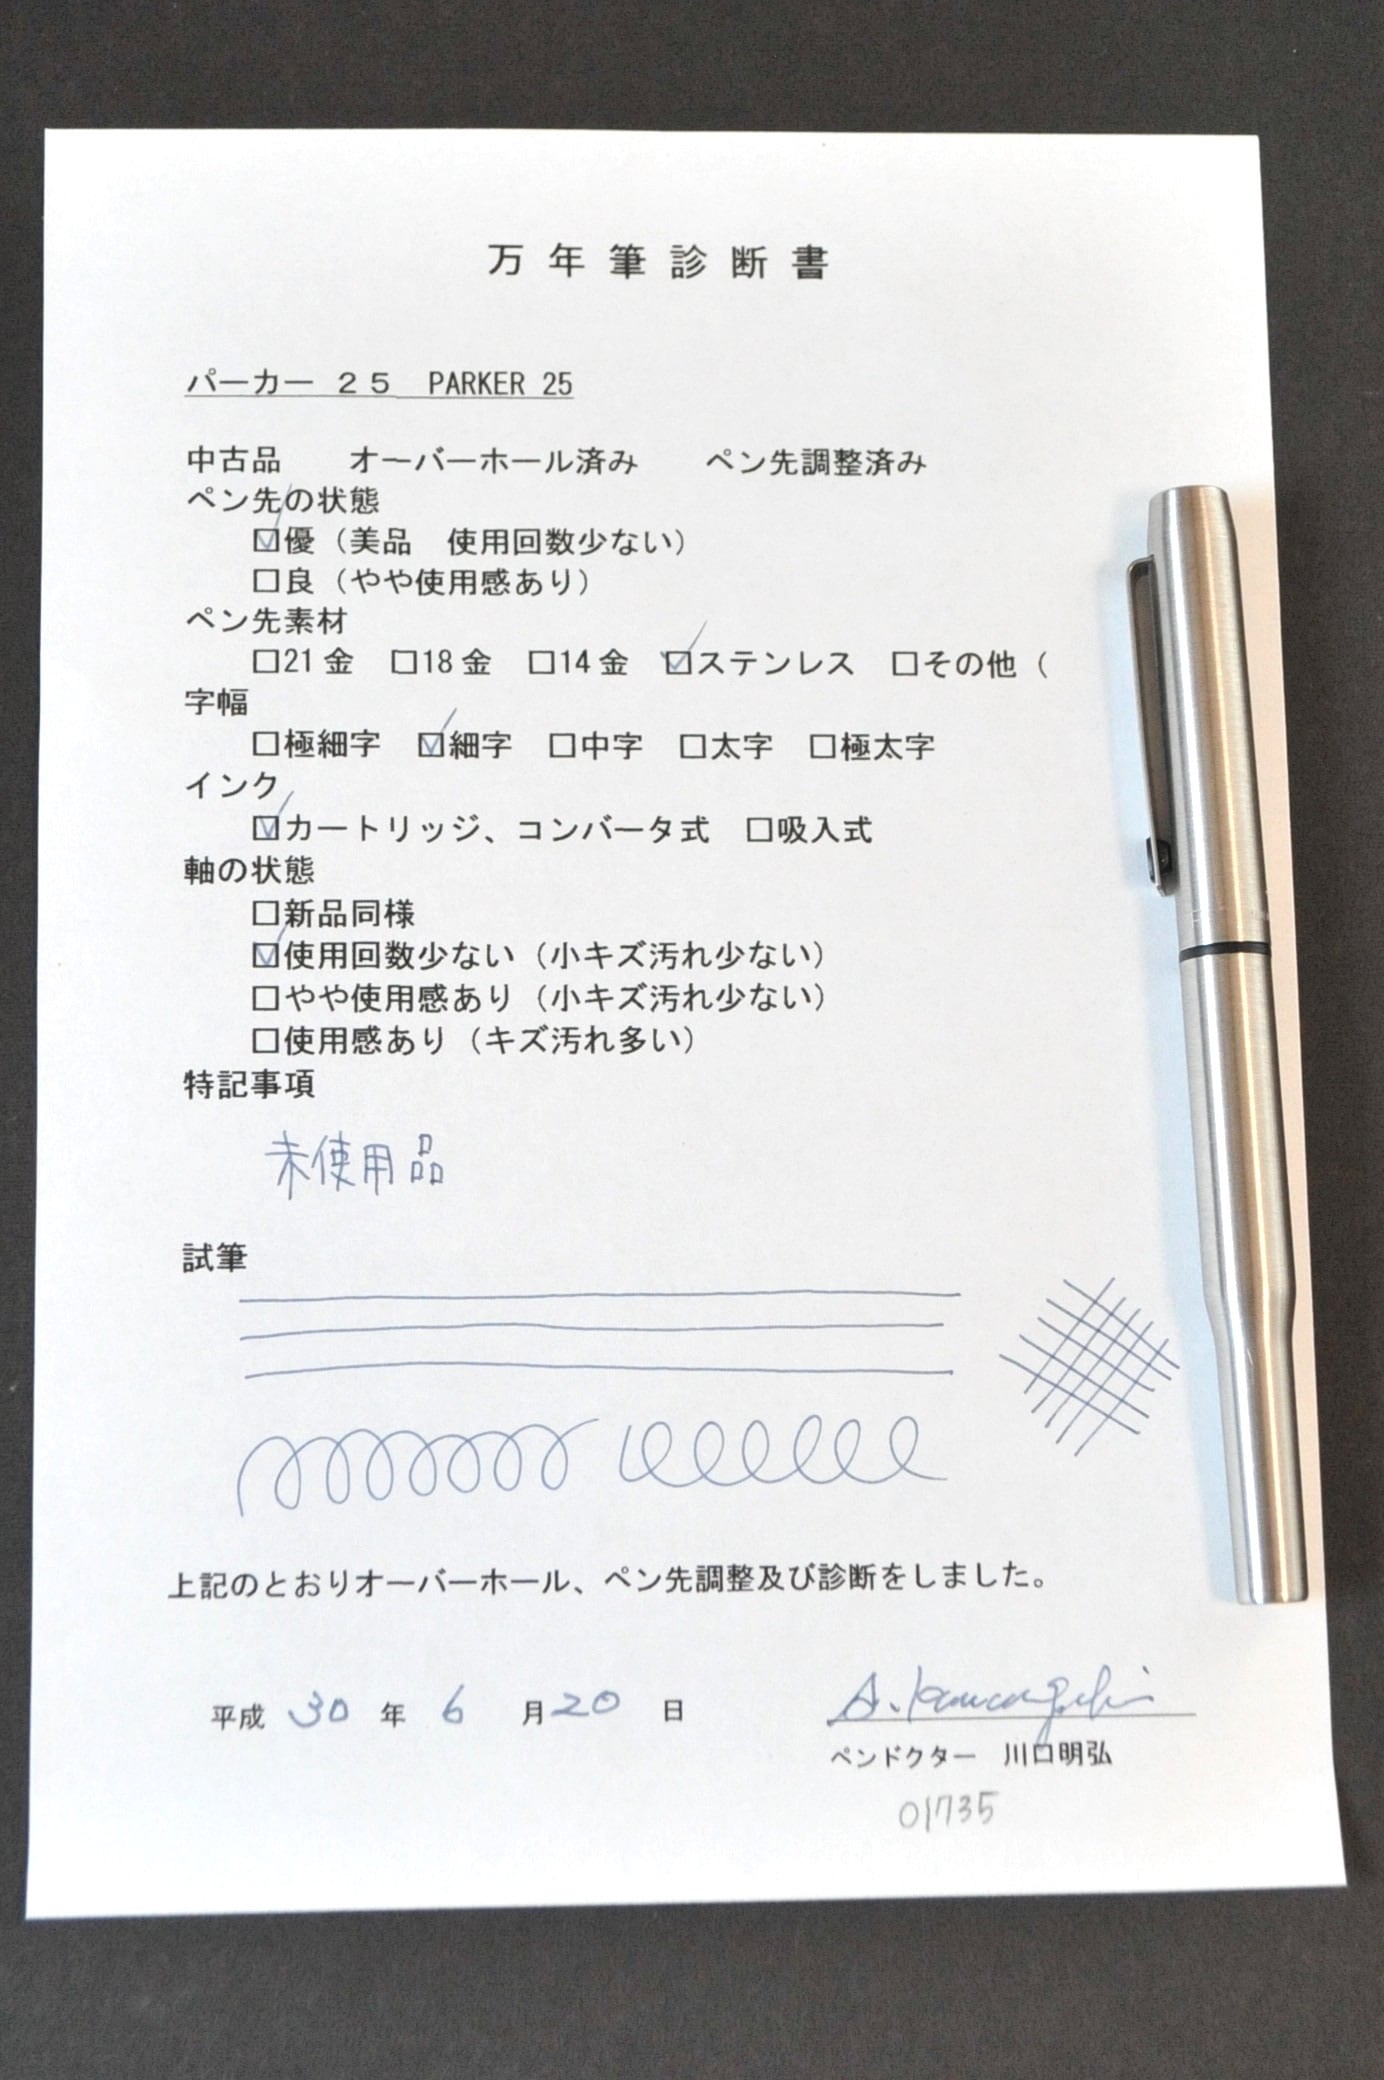 万年筆診断書
パーカー ２５　PARKER 25
中古品　　オーバーホール済み　　ペン先調整済み
ペン先の状態
☑優（美品　使用回数少ない）
□良（やや使用感あり）
ペン先素材
□21金　□18金　□14金　☑ステンレス　□その他（
字幅
□極細字　☑細字　□中字　□太字　□極太字
インク
☑カートリッジ、コンバータ式　□吸入式
軸の状態
□新品同様
☑使用回数少ない（小キズ汚れ少ない）
□やや使用感あり（小キズ汚れ少ない）
□使用感あり（キズ汚れ多い）
特記事項
未使用品
試筆
上記のとおりオーバーホール、ペン先調整及び診断をしました。
平成 30 年 6 月 20 日
A. Kawaguchi
ペンドクター　川口明弘
01735